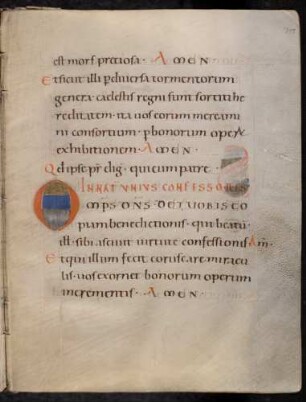 est mors pretiosa. AMEN.
Et sicut illi per diversa tormentorum
genera caelestis regni sunt sortiti he
reditatem. ita vos eorum mereami
ni consortium. p bonorum operum
exhibitionem. AMEN.
Qd ipse pr dig. qui cum patre.
IN NAT UNIUS CONFESSORIS
OMPS DNS DET VOBIS CO
piam benedictionis. qui beatum
ill. sibi ascivit virtute confessionis. Am.
Et qui illum fecit coruscare miracu
lis. vos exornet bonorum operum
incrementis. AMEN.